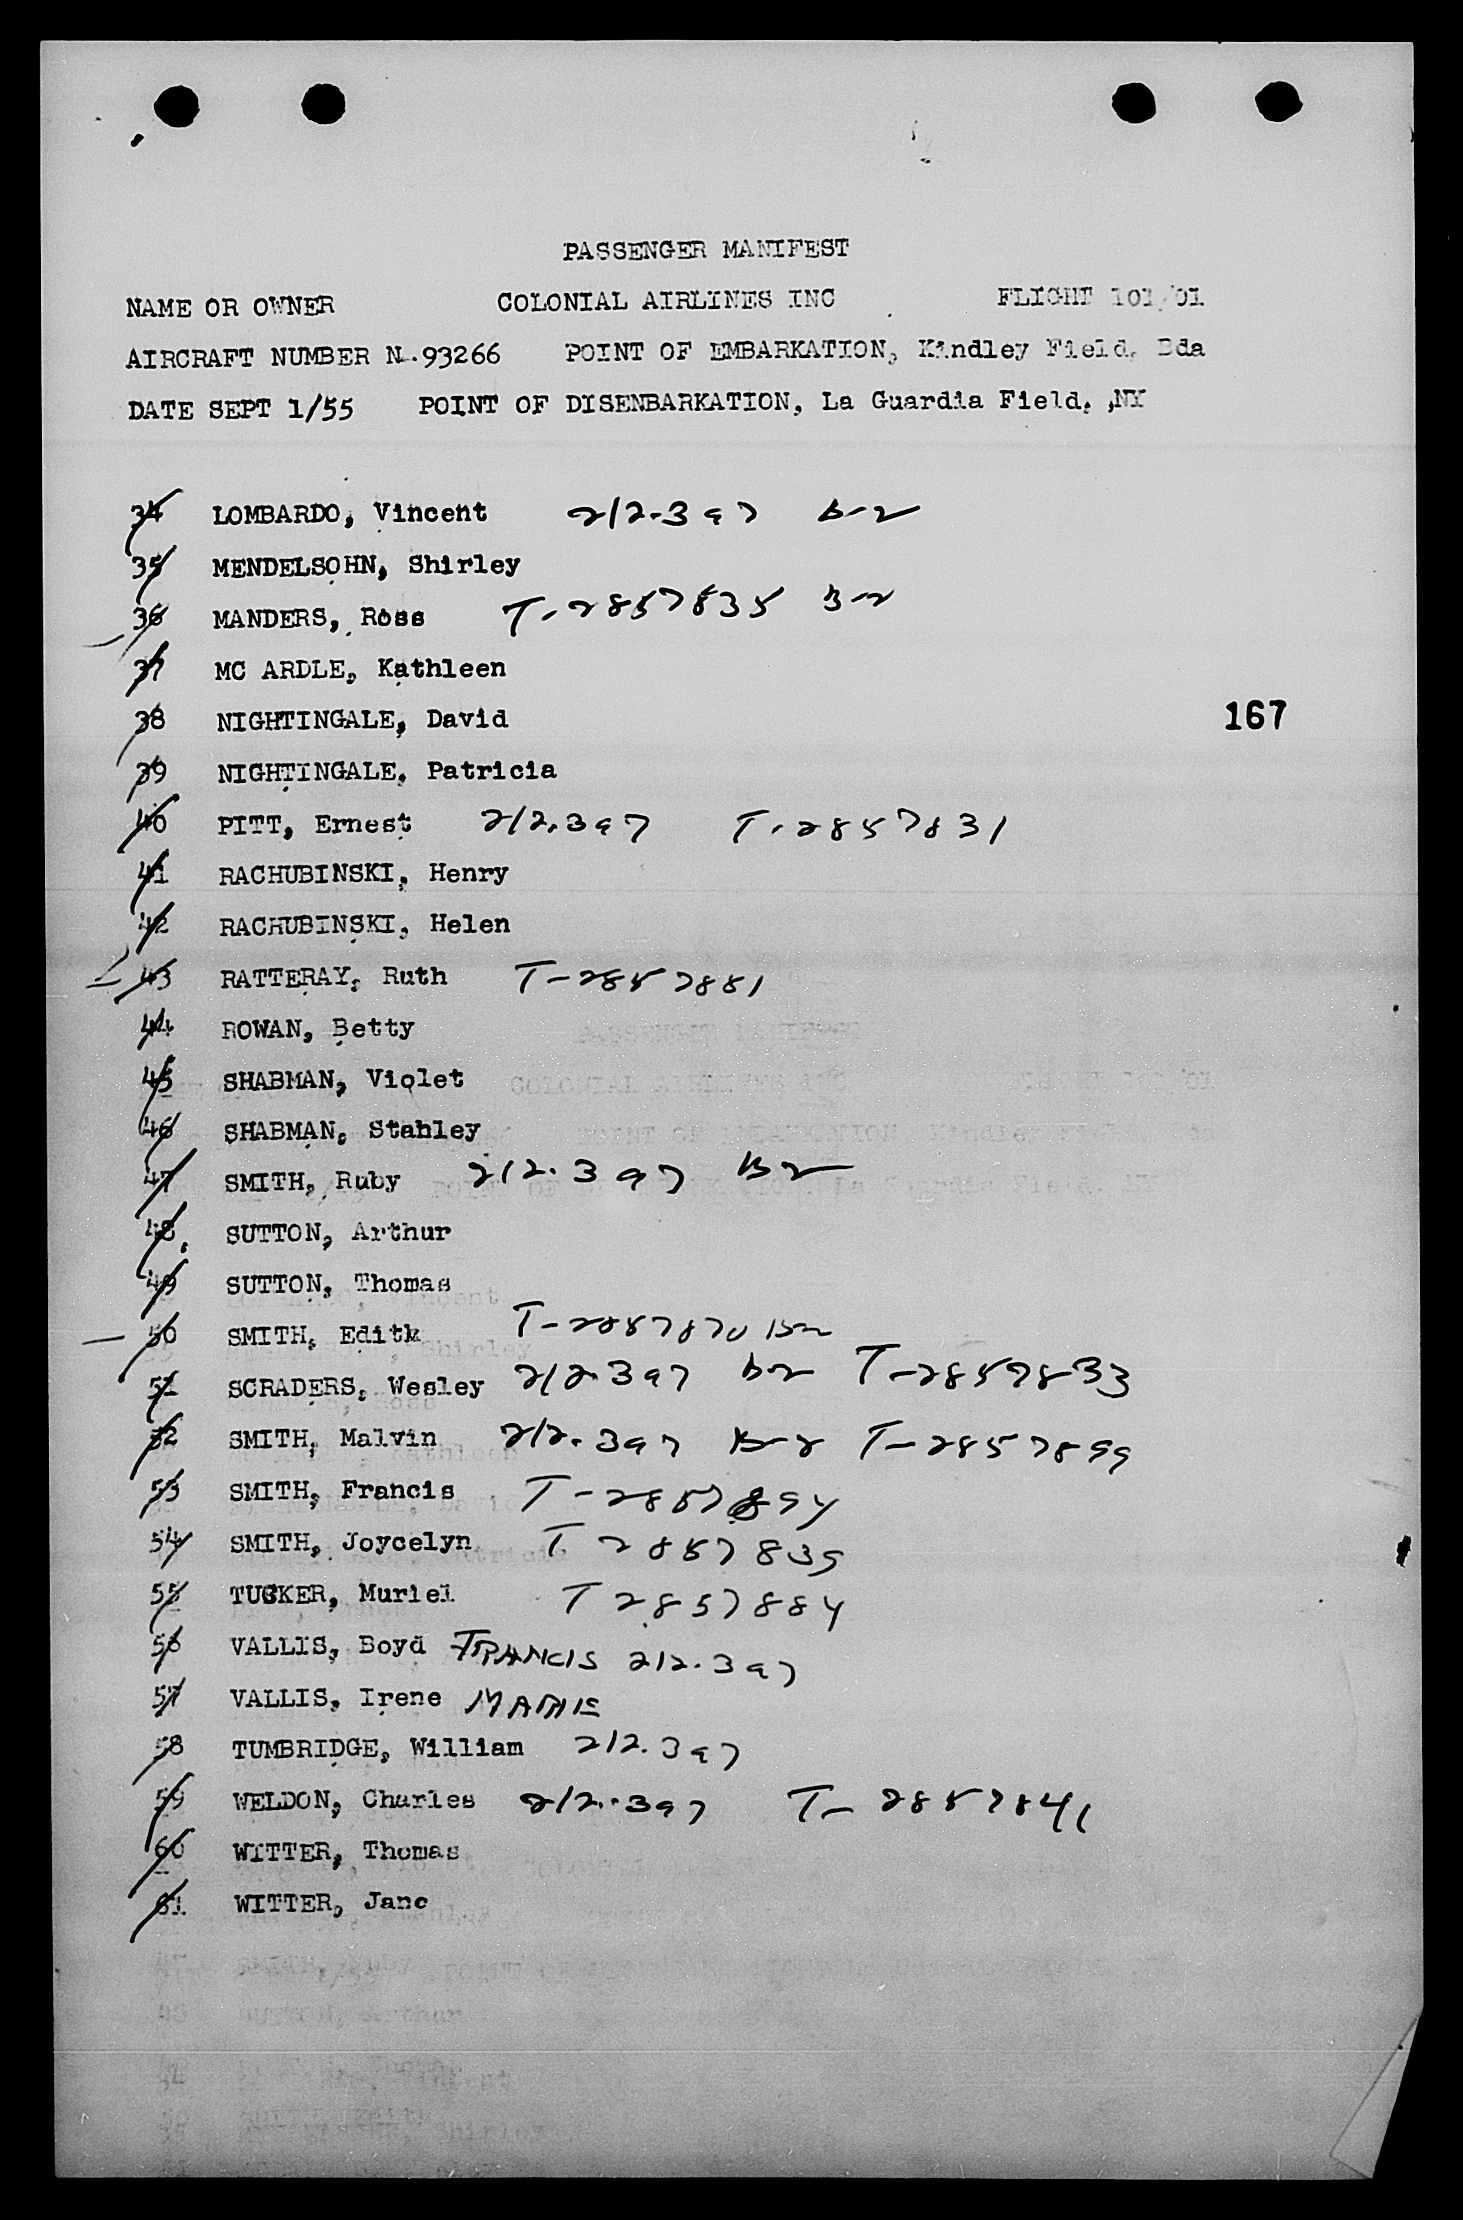 PASSENGER MANIFEST
NAME OR OWNER COLONIAL AIRLINES INC FLIGHT 101/01
AIRCRAFT NUMBER N.93266 POINT OF EMBARKATION, Kindley Field, Bda
DATE SEPT 1/55 POINT OF DISENBARKATION, La Guardia Field, ,NY
34 LOMBARDO, Vincent 212.397 B-2
35 MENDELSOHN, Shirley
36 MANDERS, Ross T-2857835 B-2
37 MC ARDLE, Kathleen
38 NIGHTINGALE, David
167
39 NIGHTINGALE, Patricia
40 PITT, Ernest 212.397 T-2857831
41 RACHUBINSKI, Henry
42 RACHUBINSKI, Helen
43 RATTERAY, Ruth T-2857881
44 ROWAN, Betty
45 SHABMAN, Violet
46 SHABMAN, Stanley
47 SMITH, Ruby 212.397 B2
48. SUTTON, Arthur
49 SUTTON, Thomas
50 SMITH, Edith T-2857870 B2
51 SCRADERS, Wesley 212.397 B-2 T-2857833
52 SMITH, Malvin 212.397 B-2 T-2857899
53 SMITH, Francis T-2857894
54 SMITH, Joycelyn T 2857839
55 TUCKER, Muriel T 2857884
56 VALLIS, Boyd FRANCIS 212.397
57 VALLIS, Irene MARIE
58 TUMBRIDGE, William 212.397
59 WELDON, Charles 212.397 T-2857841
60 WITTER, Thomas
61 WITTER, Jane